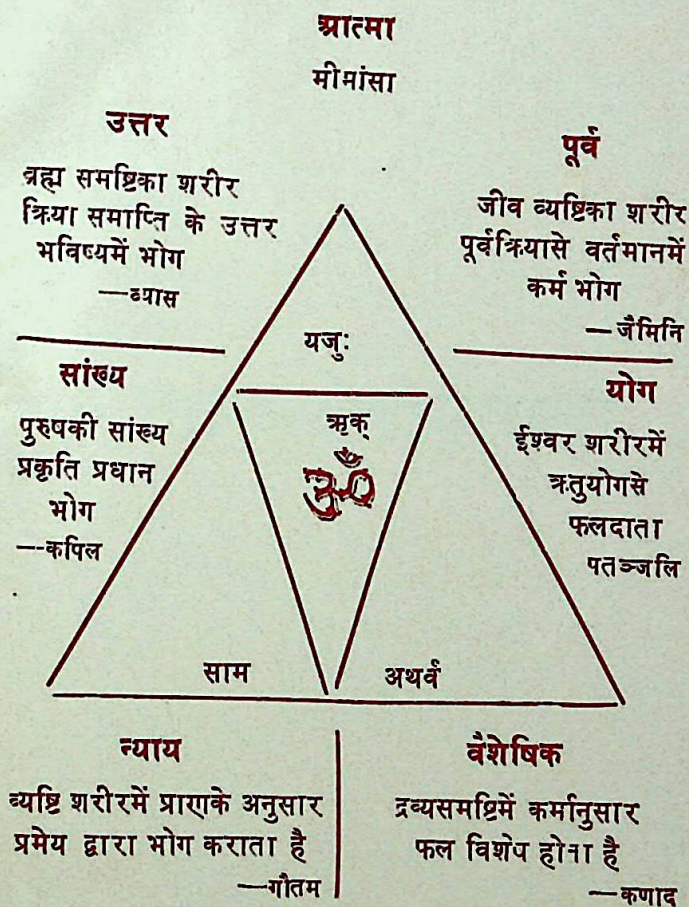 आत्मा
मीमांसा
उत्तर
ब्रह्म समष्टिका शरीर
क्रिया समाप्ति के उत्तर
भविष्यमें भोग
—व्यास
पूर्व
जीव व्यष्टिका शरीर
पूर्वक्रियासे वर्तमानमें
कर्म भोग
—जैमिनि
सांख्य
पुरुषकी सांख्य
प्रकृति प्रधान
भोग
—कपिल
योग
ईश्वर शरीरमें
ऋतुयोगसे
फलदाता
पतञ्जलि
यजुः
ऋक्
ॐ
साम
अथर्व
न्याय
व्यष्टि शरीरमें प्राणके अनुसार
प्रमेय द्वारा भोग कराता है
—गौतम
वैशेषिक
द्रव्यसमष्टिमें कर्मानुसार
फल विशेष होता है
—कणाद